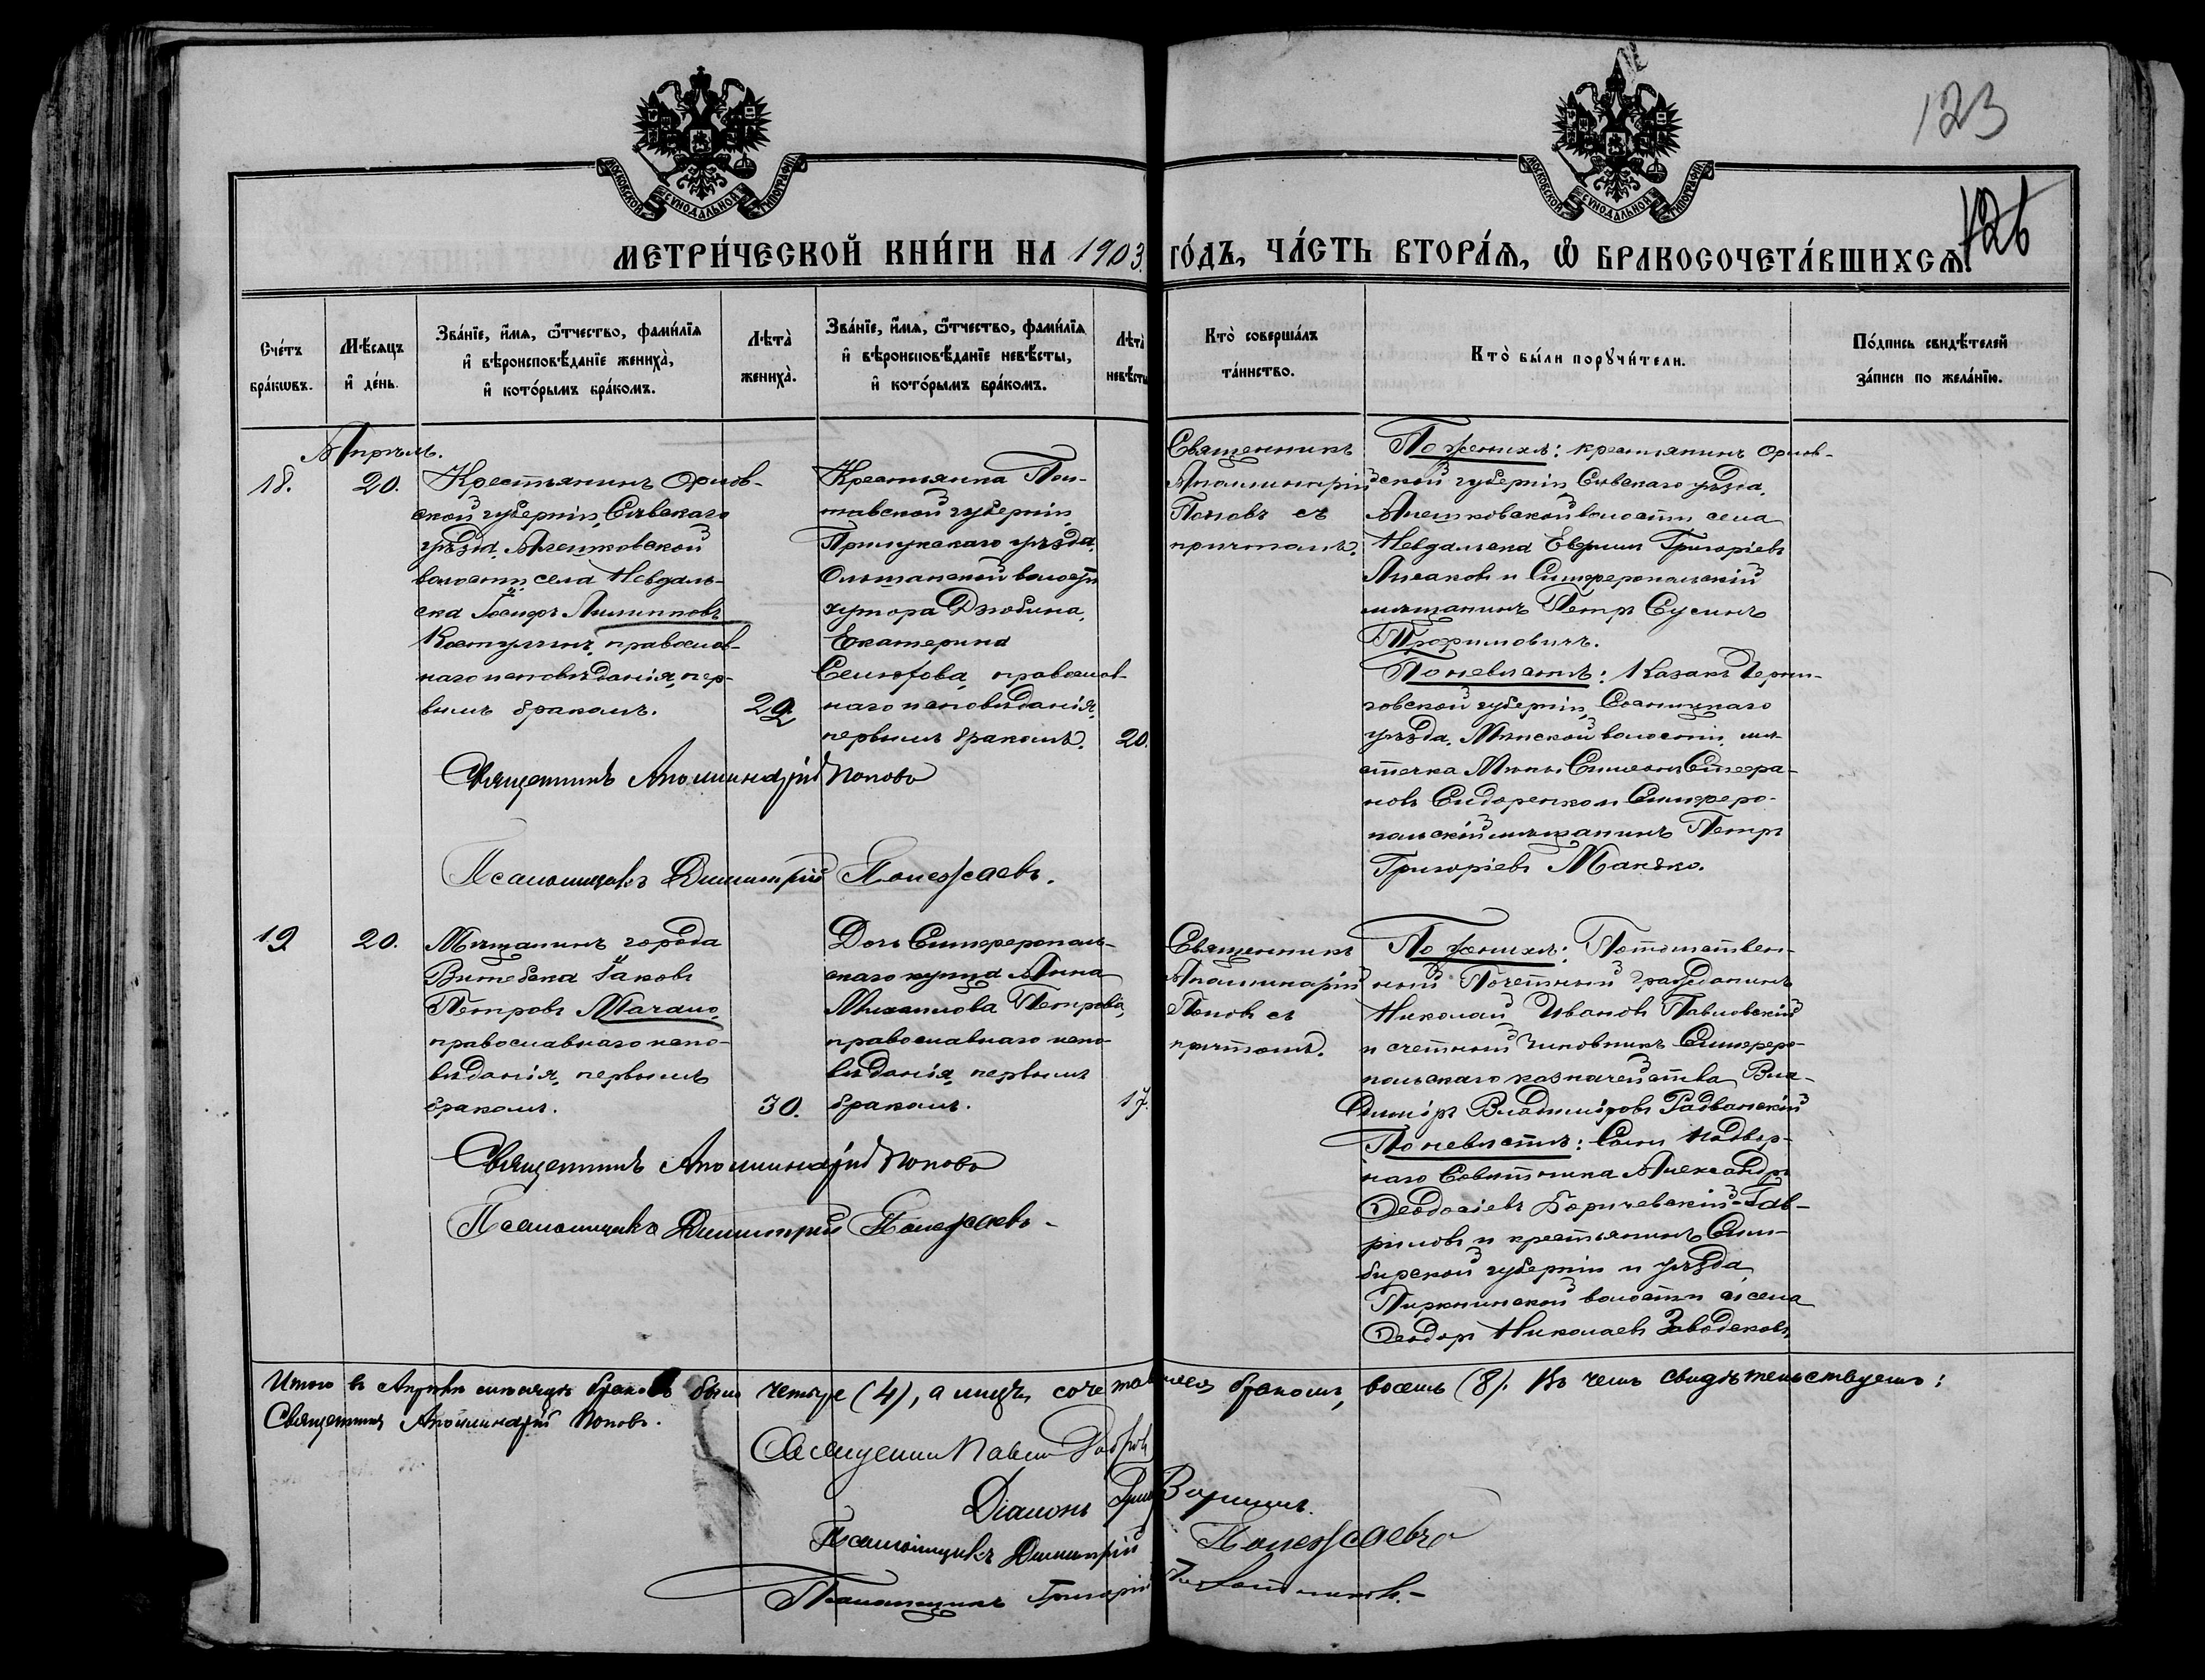 123
126
МОСКОВСКОЙ СѴНОДАЛЬНОЙ ТИПОГРАФІИ
МОСКОВСКОЙ СѴНОДАЛЬНОЙ ТИПОГРАФІИ
МЕТРИ́ЧЕСКОЙ КНИ́ГИ НА 1903 ГО́ДЪ, ЧА́СТЬ ВТОРА́Я, Ѡ БРАКОСОЧЕТА́ВШИХСЯ.
Сче́тъ
бра́кѡвъ.
Мѣ́сяцъ
и҆ де́нь.
Зва́нїе, и҆́мя, ѻ҆́тчество, фами́лїя
и҆ вѣроисповѣ́данїе жениха̀,
и҆ кото́рымъ бра́комъ.
Лѣта̀
жениха̀.
Зва́нїе, и҆́мя, ѻ҆́тчество, фами́лїя
и҆ вѣроисповѣ́данїе невѣ́сты,
и҆ кото́рымъ бра́комъ.
Лѣта̀
невѣ́сты
Кто̀ соверша́лъ
та́инство.
Кто̀ бы́ли порꙋчи́тели.
По́дпись свидѣ́телей
за́писи по жела́нїю.
Апрѣль.
18.
20.
Крестьянинъ Орлов-
ской губерніи, Сѣвскаго
уѣзда, Алешковской
волости, села Невдоль-
ска Іосифъ Филипповъ
Костулинъ, православ-
наго исповѣданія, пер-
вымъ бракомъ.
29.
Крестьянка Пол-
тавской губерніи,
Прилукскаго уѣзда,
Ольшанской волости
хутора Дзюбина,
Екатерина
православ-
наго исповѣданія,
первымъ бракомъ.
20.
Священникъ
Аполлинарій
Поповъ съ
причтомъ.
По женихѣ: крестьянинъ Орлов-
ской губерніи Сѣвскаго уѣзда,
Алешковской волости села
Невдольска Григоріевъ
Лисаковъ и Симферопольскій
мѣщанинъ Петръ Сусинъ
Трофимовичъ.
По невѣстѣ: Казакъ Черни-
говской губерніи, Сосницкаго
уѣзда, Менской волости, мѣ-
стечка Мены Симеонъ Стефа-
новъ Сидоренко и Симферо-
польскій мѣщанинъ Петръ
Григоріевъ Манько.
Священникъ Аполлинарій Поповъ
Псаломщикъ Димитрій Полежаевъ.
19
20.
Мѣщанинъ города
Витебска Іаковъ
Петровъ Мачало,
православнаго испо-
вѣданія, первымъ
бракомъ.
30.
Дочь Симферополь-
скаго купца Анна
Михаилова Петрова,
православнаго испо-
вѣданія, первымъ
бракомъ.
17.
Священникъ
Аполлинарій
Поповъ съ
причтомъ.
По женихѣ: Потомствен-
ный Почетный Гражданинъ
Николай Ивановъ Павловскій
и счетный чиновникъ Симферо-
польскаго казначейства Вла-
диміръ Владиміровъ Радванскій
По невѣстѣ: Сынъ Надвор-
наго Совѣтника Александръ
Ѳеодосіевъ Боричевскій-Гав-
риловъ и крестьянинъ Сим-
бирской губерніи и уѣзда,
волости и села
Ѳеодоръ Николаевъ Заводсковъ
Священникъ Аполлинарій Поповъ
Псаломщикъ Димитрій Полежаевъ
Итого въ Апрѣлѣ мѣсяцѣ браковъ было четыре (4), а лицъ, сочетавшихся бракомъ, восемь (8). Въ чемъ свидѣтельствуемъ:
Священникъ Аполлинарій Поповъ.
Священникъ Павелъ
Діаконъ
Псаломщикъ Димитрій Полежаевъ
Псаломщикъ Григорій